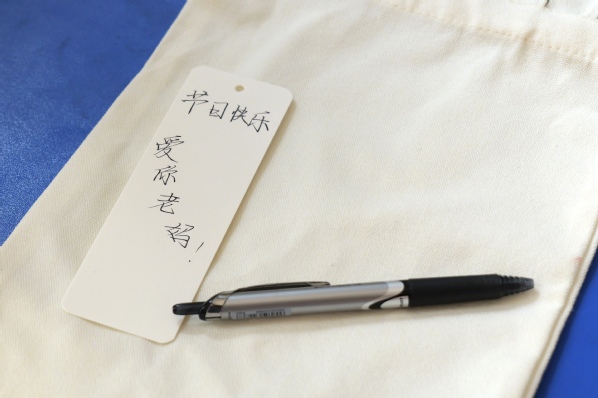 节日快乐
爱你老妈!